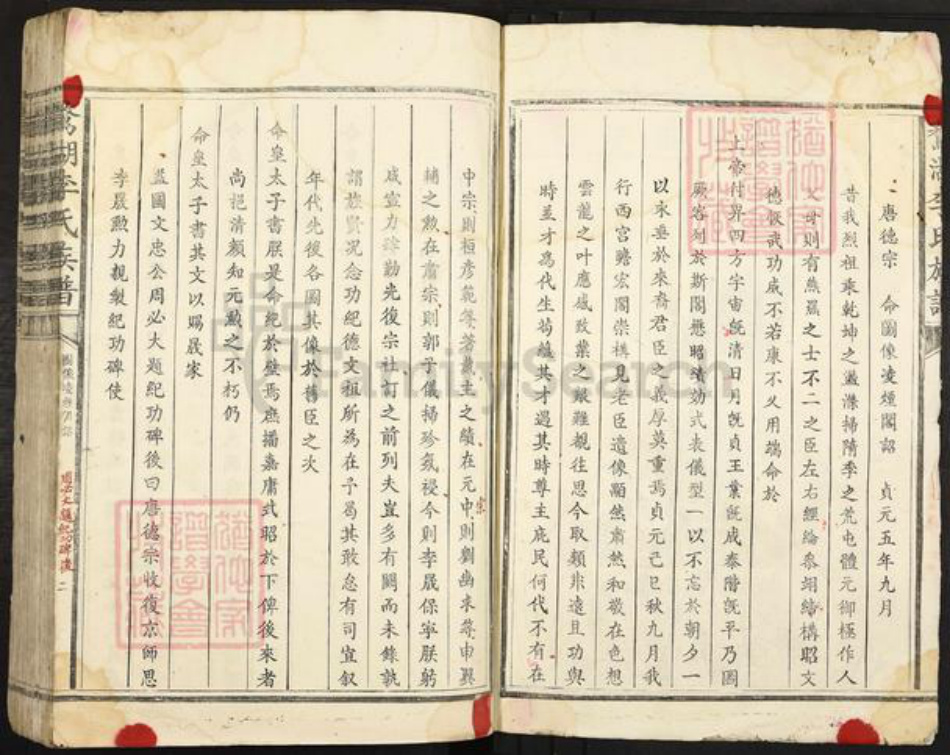 唐德宗 命圖像凌煙閣詔 貞元五年九月
昔我烈祖乘乾坤之盪滌掃隋季之荒屯體元御極作人
父母則有熊羆之士不二之臣左右經綸參翊締構昭文
德恢武功威不若康不乂用端命於
上帝付畀四方宇宙旣清日月旣貞王業旣成泰階旣平乃圖
厥容列於斯閣懋昭績効式表儀型一以不忘於朝夕一
以永垂於來裔君臣之義厚莫重焉貞元己巳秋九月我
行西宮瞻宏閣崇構見老臣遺像顒然肅然和敬在色想
雲龍之叶應感致業之艱難覩往思今取類非遠且功與
時並才爲代生苟蘊其才遇其時尊主庇民何代不有在
中宗則桓彥範等著戴主之績在元宗則劉幽求等申翼
輔之勲在肅宗則郭子儀掃殄氛祲今則李晟保寧朕躬
咸宣力肆勤光復宗社訂之前列夫豈多有闕而未錄孰
謂旌賢况念功紀德文祖所爲在予曷其敢怠有司宜叙
年代先後各圖其像於舊臣之次
命皇太子書朕是命紀於壁焉庶播嘉庸式昭於下俾後來者
尚挹清顏知元勲之不朽仍
命皇太子書其文以賜晟家
益國文忠公周必大題紀功碑後曰唐德宗收復京師思
李晟勲力親製紀功碑使
李氏族譜
周必大題紀功碑後
二
FamilySearch